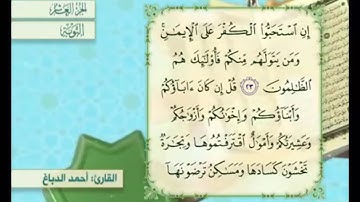 الجزء العاشر
التوبة
إِنِ ٱسْتَحَبُّوا۟ ٱلْكُفْرَ عَلَى ٱلْإِيمَٰنِ
وَمَن يَتَوَلَّهُم مِّنكُمْ فَأُو۟لَٰٓئِكَ هُمُ
ٱلظَّٰلِمُونَ ٢٣ قُلْ إِن كَانَ ءَابَآؤُكُمْ
وَأَبْنَآؤُكُمْ وَإِخْوَٰنُكُمْ وَأَزْوَٰجُكُمْ
وَعَشِيرَتُكُمْ وَأَمْوَٰلٌ ٱقْتَرَفْتُمُوهَا وَتِجَٰرَةٌ
تَخْشَوْنَ كَسَادَهَا وَمَسَٰكِنُ تَرْضَوْنَهَآ
القارئ: أحمد الدباغ